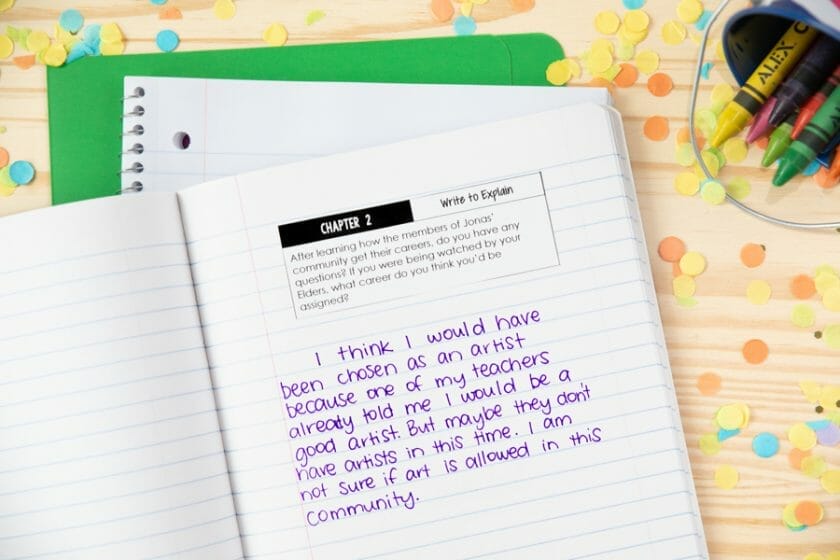 ALEX
CHAPTER 2
Write to Explain
After learning how the members of Jonas'
community get their careers, do you have any
questions? If you were being watched by your
Elders, what career do you think you'd be
assigned?
I think I would have
been chosen as an artist
because one of my teachers
already told me I would be a
good artist. But maybe they don't
have artists in this time. I am
not sure if art is allowed in this
community.